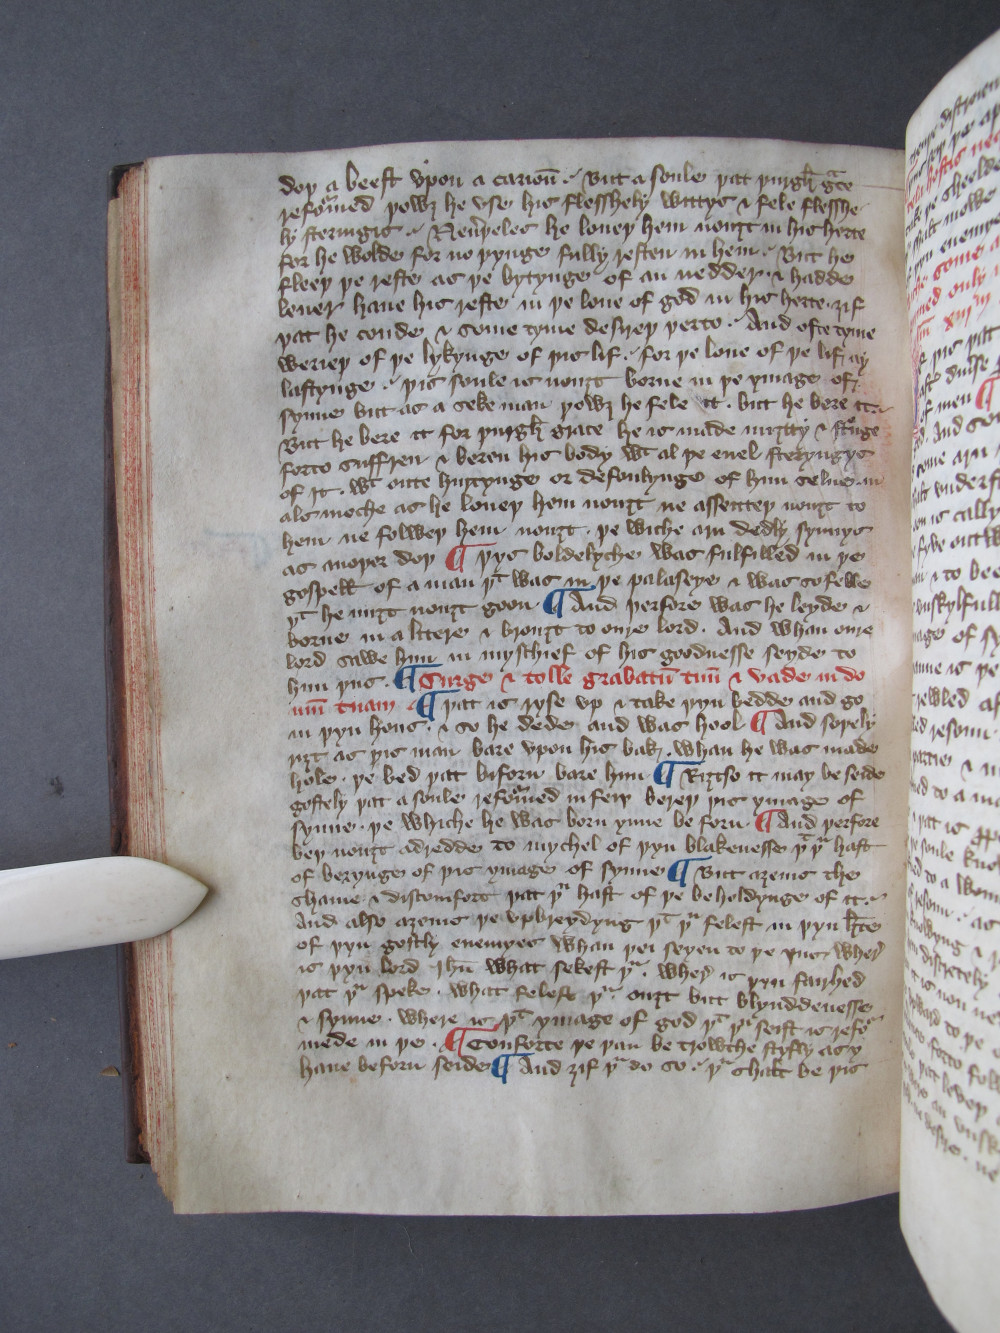 doþ a beest vpon a carioū. But a soule þat þurgħ gͣce
refoꝛmed þowȝ he vse his flesshely wittys & fele flesshe
ly steringis. Neuþeles he loueþ hem nouȝt in his herte
for he wolde for no þynge fully resten in hem. But he
fleeþ þe reste as þe bytynge of an nedder. & hadde
leuer haue his reste in þe loue of god in his herte. ȝif
þat he coude & some tyme desyreþ þerto. And ofte tyme
werieþ of þe lykynge of þis lif. for þe loue of þe lif ay
lastynge. þis soule is nouȝt borne in þe ymage of
synne but as a seke man þowȝ he fele it. but he bere it.
But he bere it for þurgħ grace he is made myȝty & stronge
forto suffren & beren his body wͭ al þe euel steryngys
of it. wͭ oute hurtynge or defoulynge of him selue. in
als moche as he loueþ hem nouȝt ne assenteþ nouȝt to
hem ne folweþ hem nouȝt. þe wiche arn dedly synnys
as anoþer doþ ¶ þys boldelyche was fulfilled in þe
gospell of a man þͭ was in þe palaseye & was so feble
þͭ he miȝt nouȝt goon ¶ And þerfore was he leyde &
borne in a litere & brouȝt to oure lord. And whan oure
lord sawe him in myschief of his goodnesse seyde to
him þus. ¶ Surge & tolle grabatū tuū & vade in do
mū tuam ¶ þat is ryse vp & take þyn bedde and go
in þyn hous. & so he dede and was hool ¶ And soþely
riȝt as þis man bare vpon his bak. whan he was made
hole. þe bed þat biforn bare him ¶ Riȝtso it may be seide
gostely þat a soule refoꝛmed in feiþ bereþ þis ymage of
synne. þe whiche he was born ynne be forn. ¶ And þerfore
beþ nouȝt adredde to mychel of þyn blakenesse þͭ þͧ hast
of berynge of þis ymage of synne ¶ But aȝens the
shame & discomfort þat þͧ hast of þe beholdynge of it.
And also aȝeins þe vpbreydyng þͭ þͧ felest in þyn h̄te
of þyn gostly enemyes whan þei seyen to þe þus wher
is þyn lord Ihū what sekest þͧ. wher is þyn fairhed
þat þͧ speke. what felest þͧ. ouȝt but blynddenesse
& synne. where is þͭ ymage of god þͭ þͧ seist is refoꝛ
mede in þe. ¶ Conforte þe þan be trowthe styfly as y
haue beforn seide ¶ And ȝif þͧ do so. þͧ shalt be þis